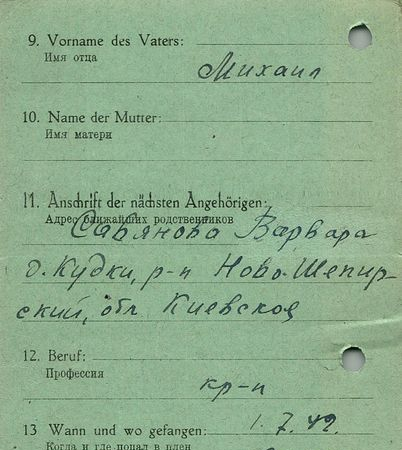 9. Vorname des Vaters:
Имя отца
Михаил
10. Name der Mutter:
Имя матери
11. Anschrift der nächsten Angehörigen:
Адрес ближайших родственников
Савянова Варвара
д. Кудки, р-н Ново-Шепир-
ский, обл Киевская
12. Beruf:
Профессия
кр-н
13 Wann und wo gefangen: 1.7.42.
Когда и где попал в плен